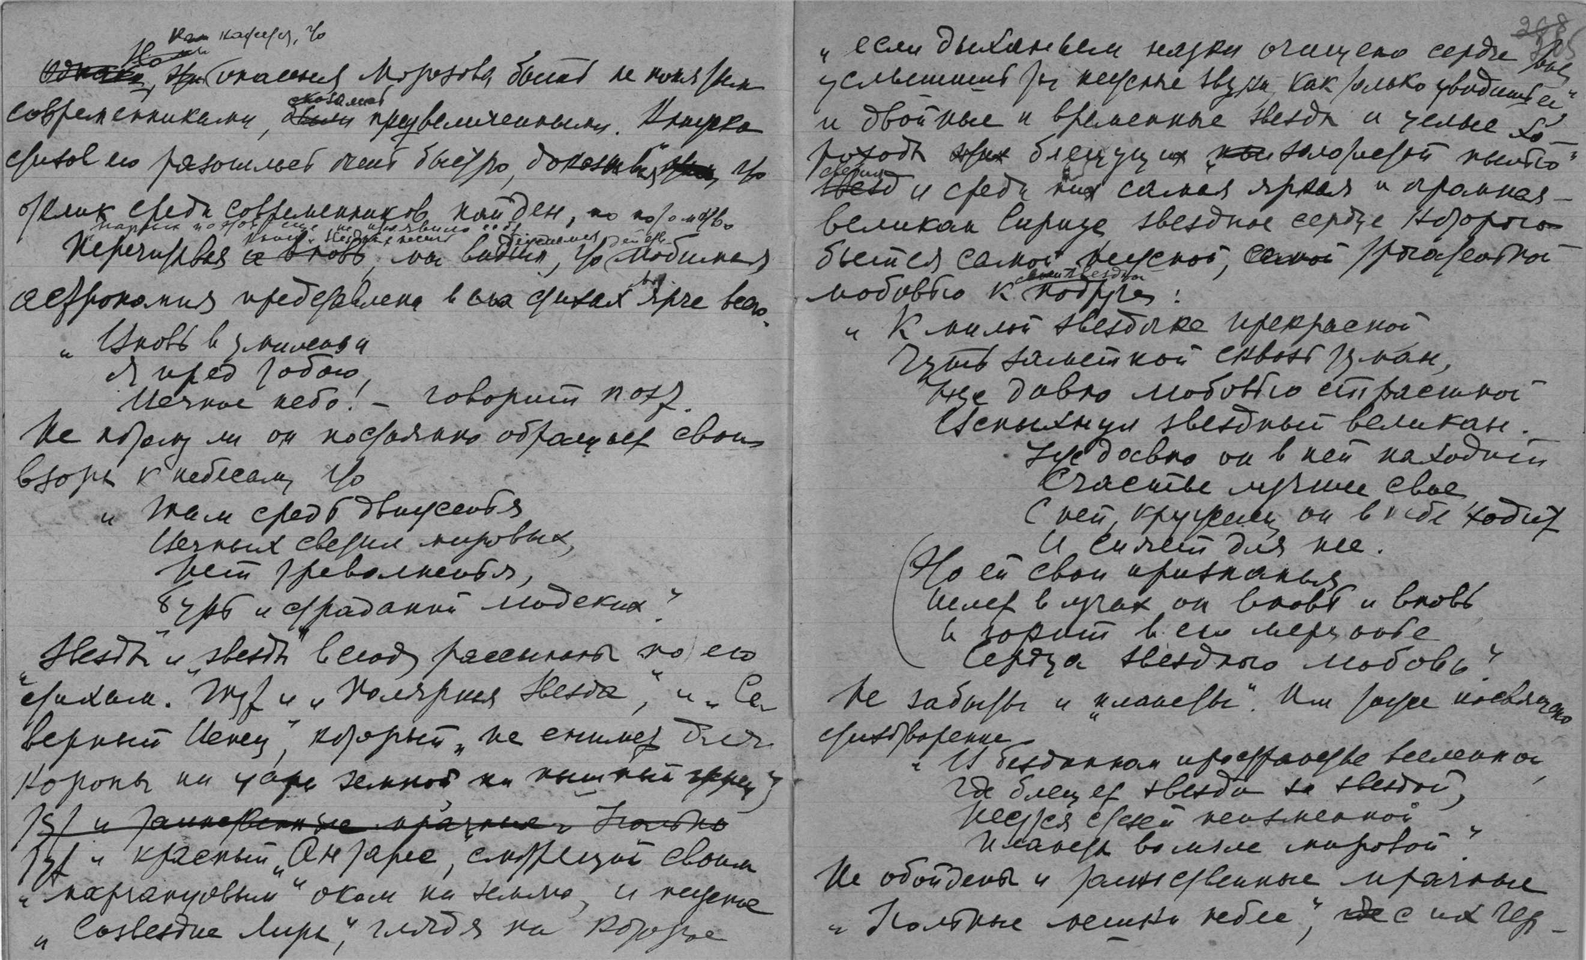 кажется, что
опасения Морозова быть не понятым
современниками, преувеличенными. Книжка
стихов его разошлась очень быстро, доказывая, что
отклик среди современников найден,
Перечитывая вновь, мы видим, что любимая
астрономия представлена в его стихах ярче всего.
„ Вновь в умилении
Я пред тобою,
Вечное небо! – говорит поэт.
Не потому ли он постоянно обращает свои
взоры к небесам, что
„ Там средь движенья
Вечных светил мировых,
Нет треволненья,
Бурь и страданий людских"
„Звезды" и „звезды" всюду рассыпаны по его
стихам. Тут и „Полярная Звезда", и „Се-
верный Венец", который „не снимет
короны ни царь земной ни пышный жрец"
Тут и таинственные мрачные Угольные
тут и красный „Антарес", смотрящий своим
„ оком на землю, и нежное
„ Созвездие Лиры", глядя на которое
„ если дыханьем науки очищено сердце
услышишь ты нежные звуки, как только увидишь ее"
и двойные и временные звезды и целые хо-
роводы блещущих золотистой пылью"
и среди них самая яркая и огромная –
великан Сириус, звездное сердце которого
бьется самой нежной, самой трогательной
любовью к подруге:
„ К милой звездочке прекрасной
Чуть заметной сквозь туман,
Уже давно любовью страстной
Вспыхнул звездный великан.
Уже давно он в ней находит
Счастье лучшее свое
С ней, кружась, он в небе ходит
И сияет для нее.
То ей свои признанья
Шлет в лучах он вновь и вновь
И горит в его мерцанье
Сердца звездного любовь"
Не забыты и „планеты". Им тоже посвящено
стихотворение
„ В бездонном пространстве вселенной,
Где блещет звезда за звездой,
Несутся стезёй неизменной
Планеты во мгле мировой".
Не обойдены и таинственные мрачные
„ Угольные мешки небес", с их чер-